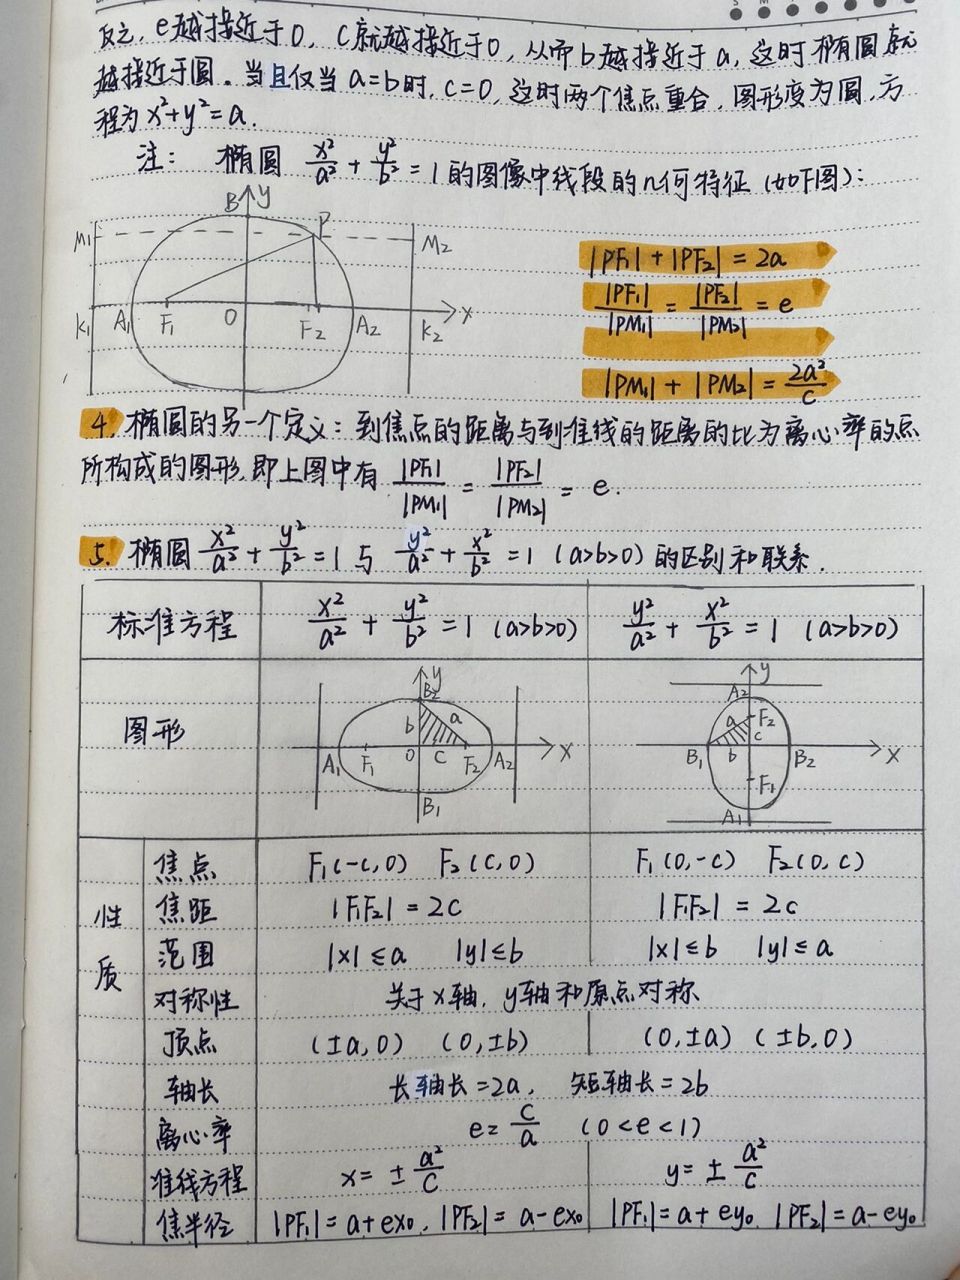 反之，e越接近于0，c就越接近于0，从而b越接近于a，这时椭圆就
越接近于圆。当且仅当a=b时，c=0，这时两个焦点重合，图形变为圆，方
程为x²+y²=a.
注： 椭圆 x²/a² + y²/b² = 1 的图像中线段的几何特征（如下图）：
B y P
M₁ M₂
K₁ A₁ F₁ O F₂ A₂ K₂ x
|PF₁| + |PF₂| = 2a
|PF₁|/|PM₁| = |PF₂|/|PM₂| = e
|PM₁| + |PM₂| = 2a²/c
4. 椭圆的另一个定义：到焦点的距离与到准线的距离的比为离心率的点
所构成的图形，即上图中有 |PF₁|/|PM₁| = |PF₂|/|PM₂| = e.
5. 椭圆 x²/a² + y²/b² = 1 与 y²/a² + x²/b² = 1 (a>b>0) 的区别和联系.
标准方程 x²/a² + y²/b² = 1 (a>b>0) y²/a² + x²/b² = 1 (a>b>0)
图形
y B₂ b a A₁ F₁ O C F₂ A₂ x B₁
y A₂ a F₂ c B₁ b B₂ x F₁ A₁
性质
焦点 F₁(-c,0) F₂(c,0) F₁(0,-c) F₂(0,c)
焦距 |F₁F₂| = 2c |F₁F₂| = 2c
范围 |x|≤a |y|≤b |x|≤b |y|≤a
对称性 关于x轴，y轴和原点对称
顶点 (±a,0) (0,±b) (0,±a) (±b,0)
轴长 长轴长=2a， 短轴长=2b
离心率 e=c/a (0<e<1)
准线方程 x= ± a²/c y= ± a²/c
焦半径 |PF₁|=a+ex₀，|PF₂|=a-ex₀ |PF₁|=a+ey₀ |PF₂|=a-ey₀